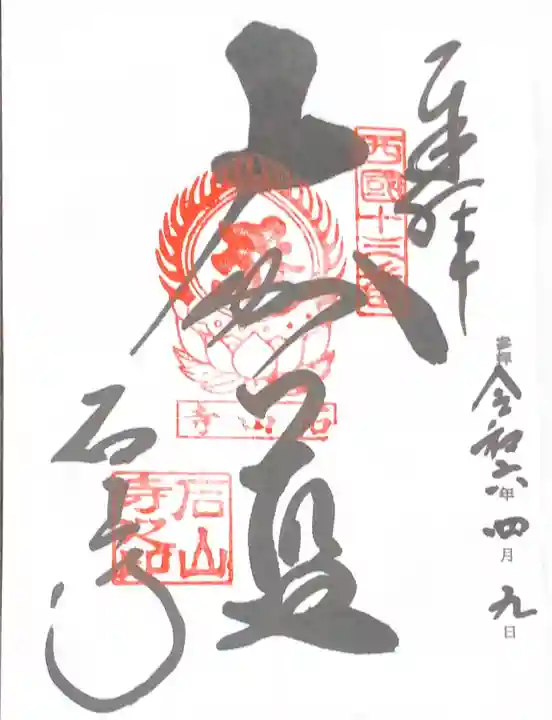 奉拝
西國十三番
令和六年四月九日
大伽藍
石山寺
石山寺
石山寺